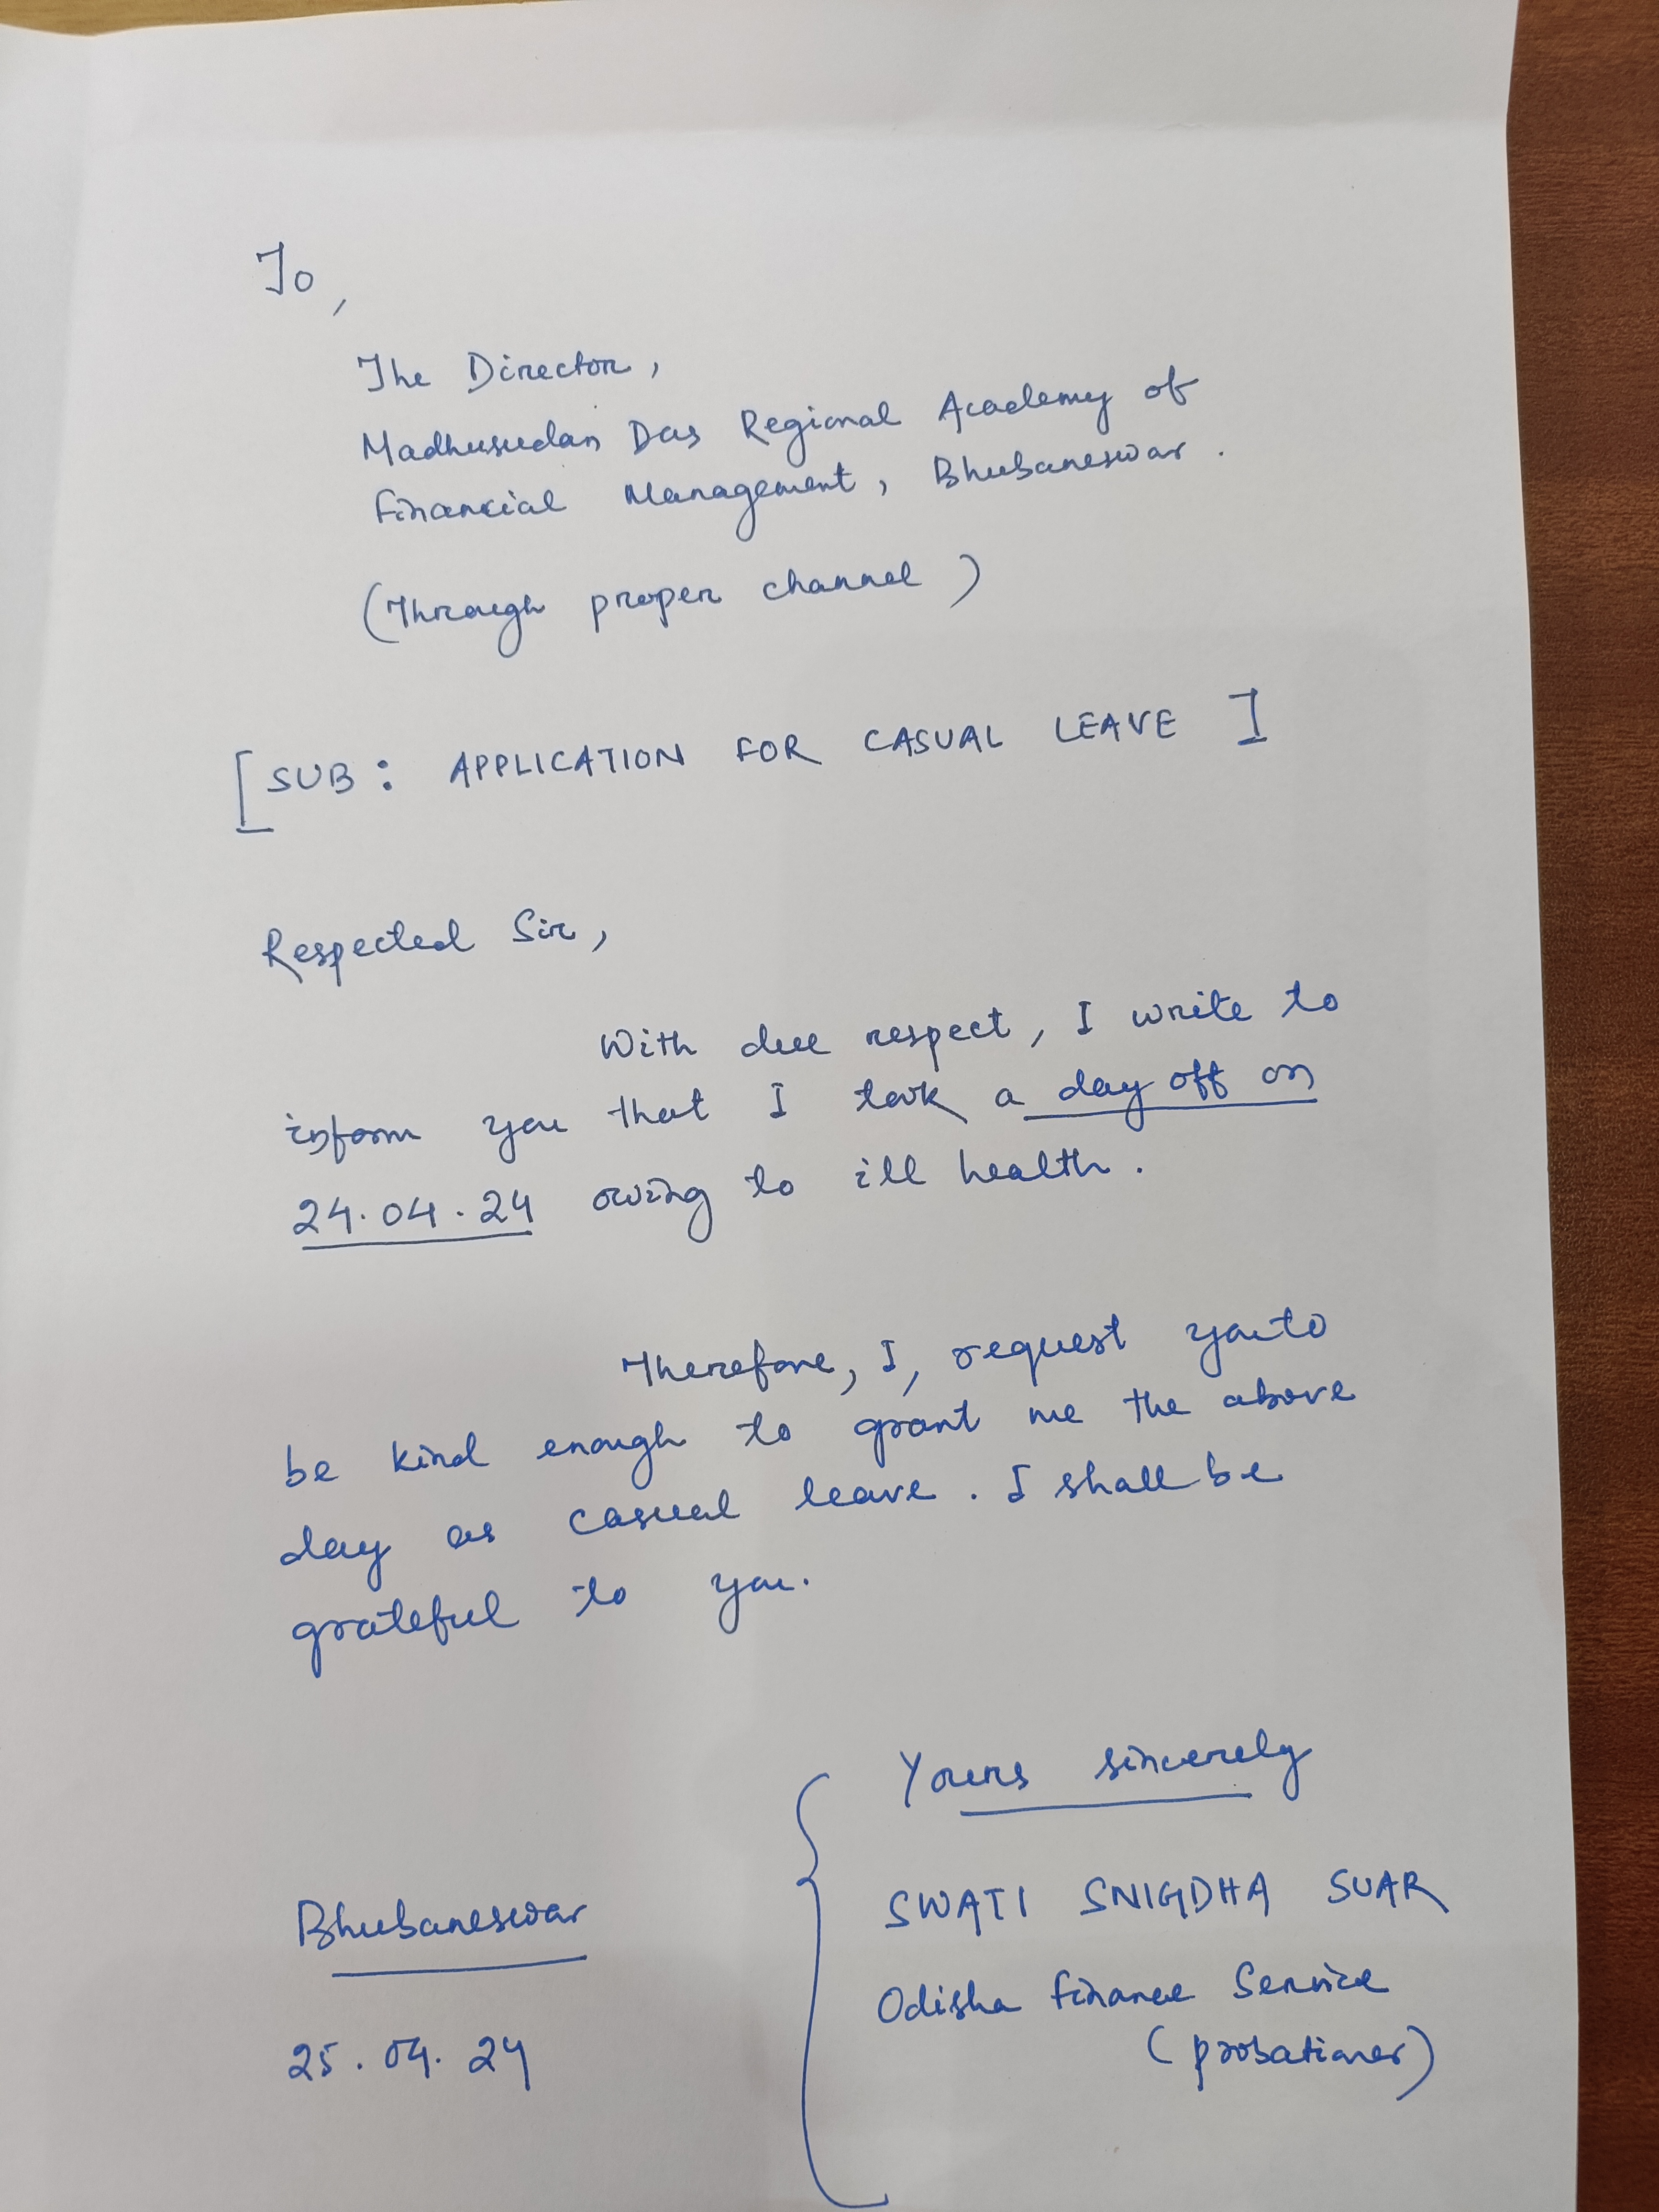 To,
The Director,
Madhusudan Das Regional Academy of
Financial Management, Bhubaneswar.
(Through proper channel)
[SUB: APPLICATION FOR CASUAL LEAVE]
Respected Sir,
With due respect, I write to
inform you that I took a day off on
24.04.24 owing to ill health.
Therefore, I, request you to
be kind enough to grant me the above
day as casual leave. I shall be
grateful to you.
Yours sincerely
Bhubaneswar
SWATI SNIGDHA SUAR
Odisha Finance Service
25.04.24
(probationer)